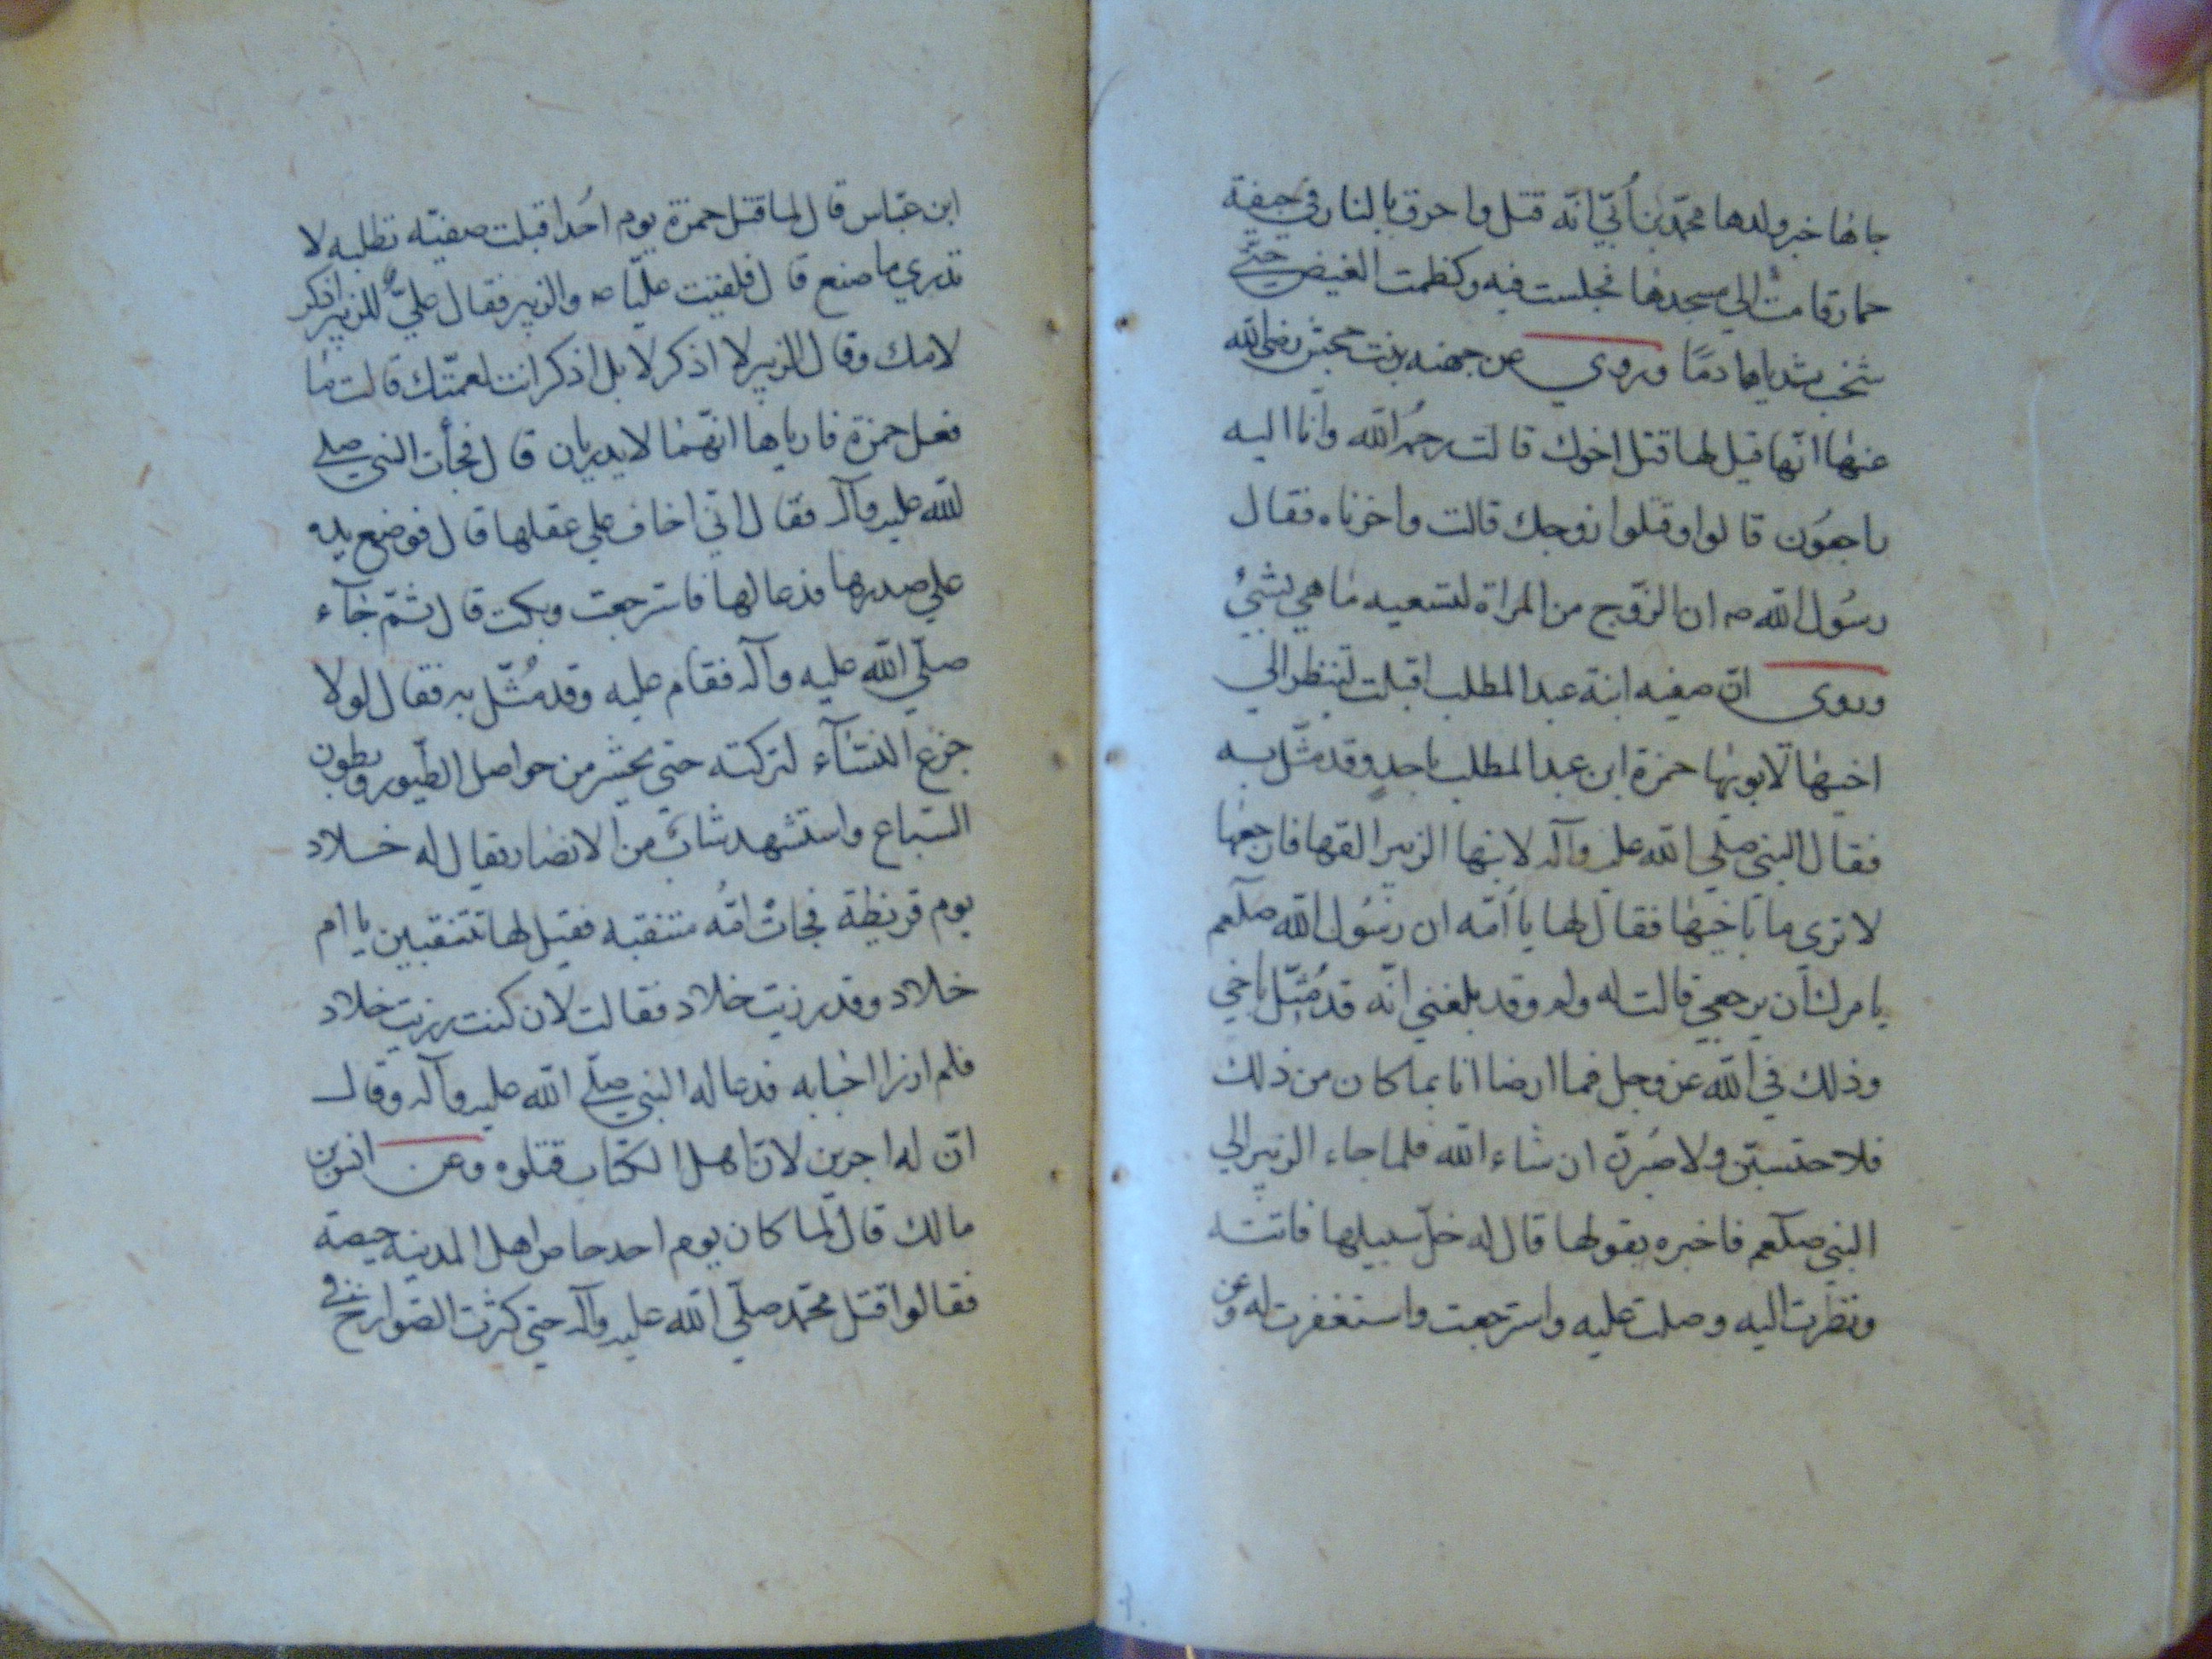 جاءها خبر ولدها محمد بن أبي انه قتل واحرق بالنار في جيفة
حمار قامت الي مسجدها فجلست فيه وكظمت الغيض حتي
شخب ثدياها دمًا وروي عن جهنه بنت جحش رضي الله
عنها انّها قيل لها قتل اخوك قالت رحمه الله وانا اليه
راجعُون قالوا وقتلوا زوجك قالت واحزناه فقال
رسُول الله صـ ان الزّوج من المراة لتسعيه ما هي لشيءُ
وروى انّ صفيه ابنة عبد المطلب اقبلت لتنظر الي
اخيها لابويها حمزة ابن عبد المطلب باحدٍ وقد مثّل به
فقال النبي صلي الله عليه وآله لابنها الزبير القها فارجعها
لا تري ما باخيها فقال لها يا اُمّه ان رسُول الله صلعم
يامرك أن يرجعي قالت له ولم وقد بلغني انّه قد مُثّل باخي
وذلك في الله عز وجل فما ارضا انا بما كان من ذلك
فلاحتسبّن ولاصبُرنّ ان شاء الله فلما جاء الزبير الي
النبي صلعم فاخبره بقولها قال له خلّ سبيلها فاتته
ونظرت اليه وصلت عليه واسترجعت واستغفرت له وعن
ابن عبّاس قال لما قتل حمزة يوم اُحد اقبلت صفيّه تطلبه لا
تدري ما صنع قال فلقيت عليّا عـ والزبير فقال عليّ للزبير اذكر
لامك وقال الزبير لا اذكر لا بل اذكر انت لعمتّك قالت ما
فعل حمزة فارياها انّهما لا يدريان قال فجأت النبي صلي
الله عليه وآله فقال انّي اخاف علي عقلها قال فوضع يده
علي صدرها فدعا لها فاسترجعت وبكت قال ثمّ جآء
صلّي الله عليه وآله فقام عليه وقد مُثّل به فقال لولا
جزع النسآء لتركته حتي يحشر من حواصل الطيور وبطون
السّباع واستشهد شابّ من الانصار يقال له خلاد
يوم قريظة فجاتْ امّه متنقبه فقيل لها تتنقبين يا ام
خلاد وقد رزيت خلاد فقالت لان كنت رزيت خلاد
فلم ارزا احبابه فدعا له النبي صلّي الله عليه وآله وقال
انّ له اجرين لانّ اهل الكتاب قتلوه وعن انس بن
مالك قال لّما كان يوم احد حاص اهل المدينه حيصة
فقالوا قتل محمّد صلّي الله عليه وآله حتي كثرت الصّوارخ في